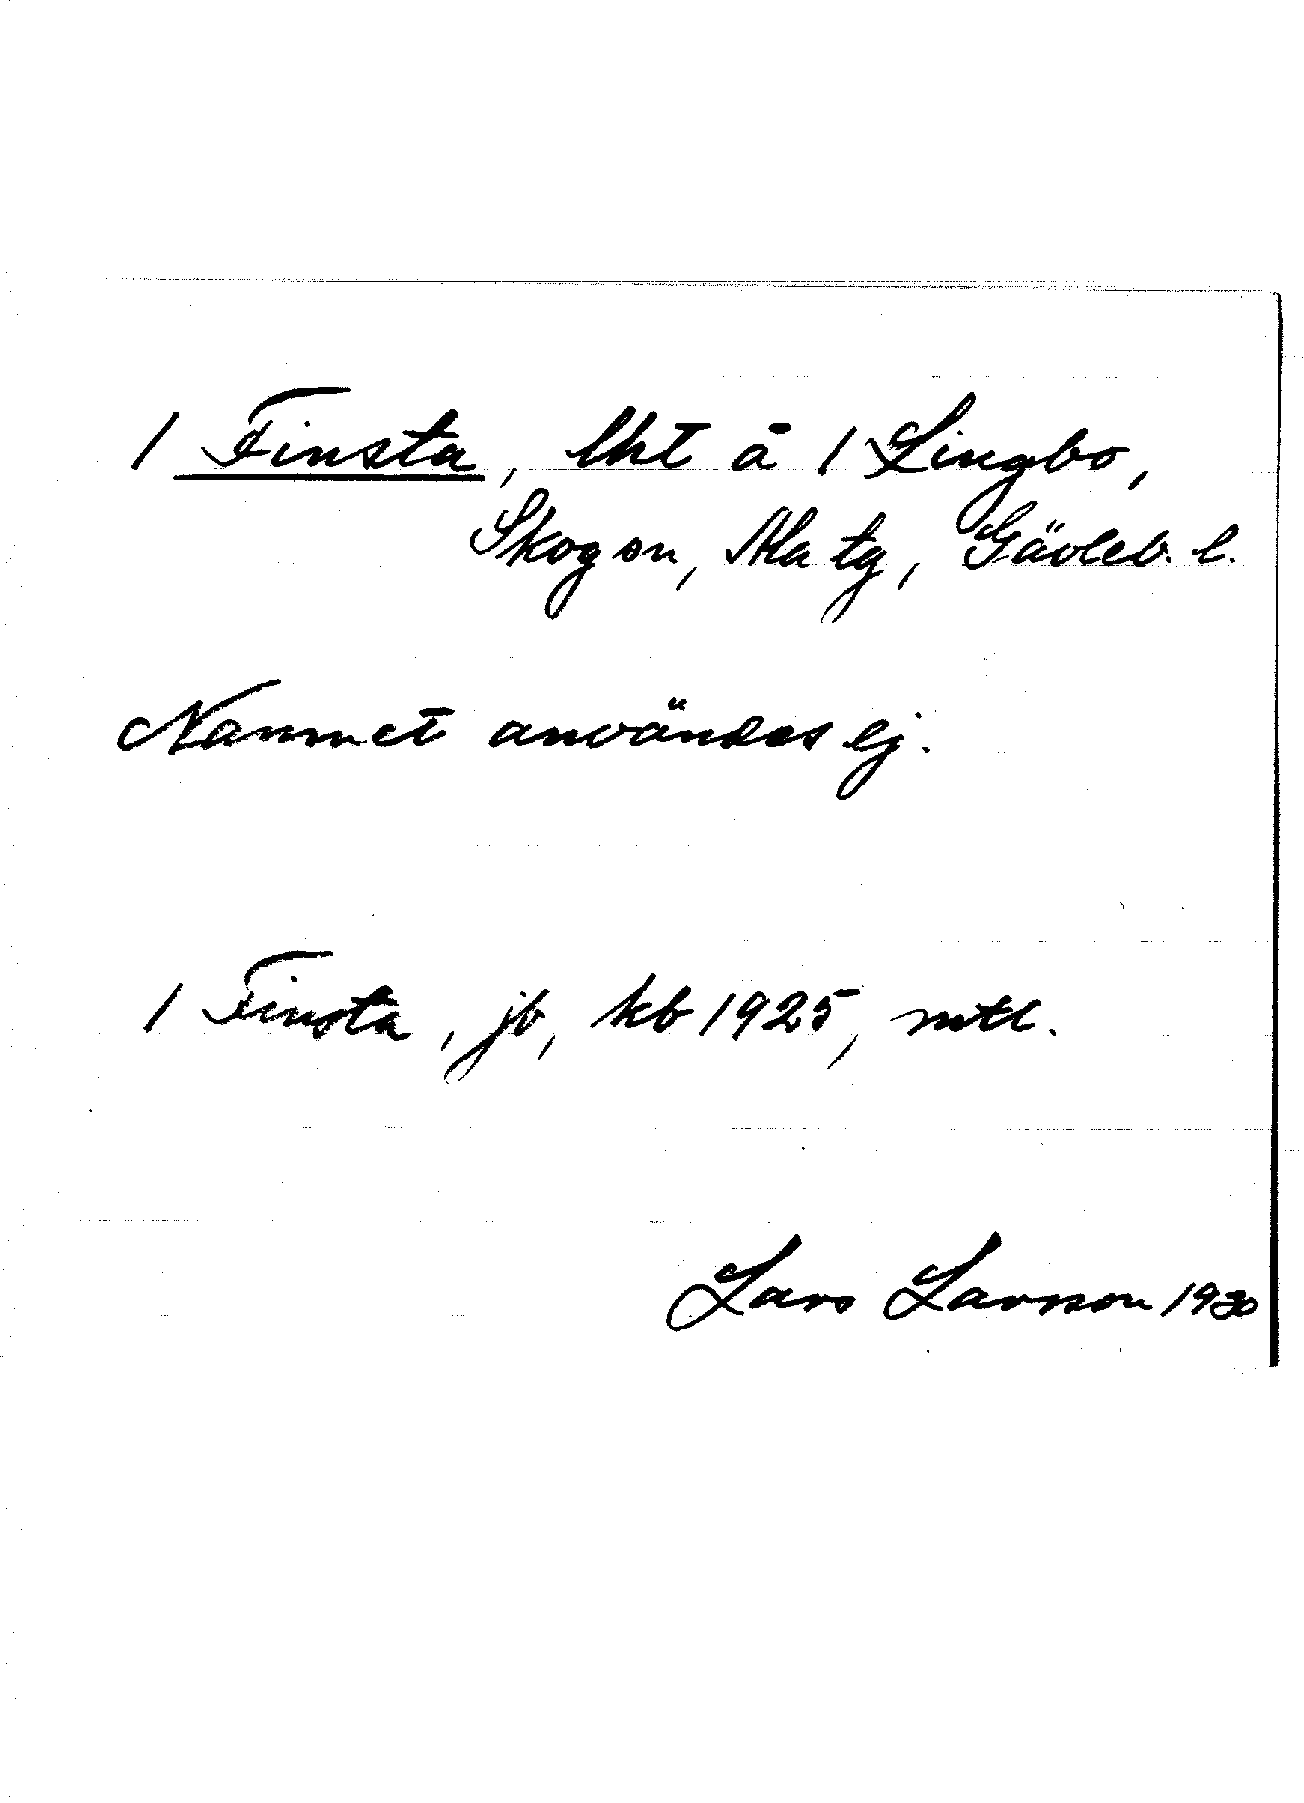 / Finsta, lht å / Lingbo,
Skog sn, Ala tg, Gävleb. l.
Namnet användes ej.
/ Finsta, jb, kb 1925, mtl.
Lars Larsson 1930